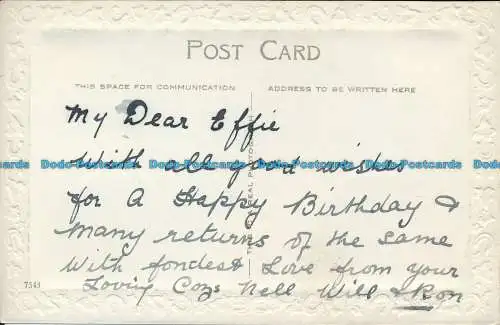 POST CARD
THIS SPACE FOR COMMUNICATION
ADDRESS TO BE WRITTEN HERE
My Dear Effie
With all good wishes
Dodo-Postcards Dodo-Postcards Dodo-Postcards Dodo-Postcards Dodo-Postcards
for A Happy Birthday &
Many returns of the same
With fondest Love from your
Loving Cozs Nell Will & Ron
7543